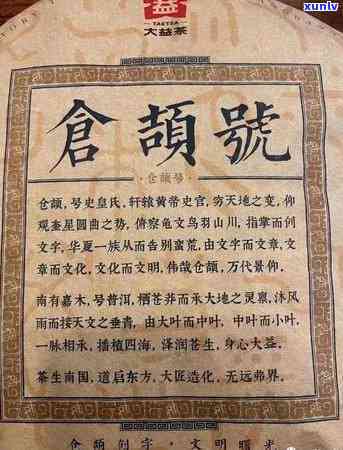 xunlv
普洱茶知识网
益
TAETEA
大益茶
倉頡號
·仓颉号·
仓颉，号史皇氏，轩辕黄帝史官，穷天地之变，仰
观奎星圆曲之势，俯察龟文鸟羽山川，指掌而创
文字，华夏一族从而告别蛮荒，由文字而文章，文
章而文化，文化而文明，伟哉仓颉，万代景仰。
南有嘉木，号普洱，栖苍莽而承大地之灵禀，沐风
雨而接天文之垂青，由大叶而中叶，中叶而小叶，
一脉相承，播植四海，泽润苍生，身心大益。
茶生南国，道启东方，大匠造化，无远弗界。
仓颉创字·文明曙光